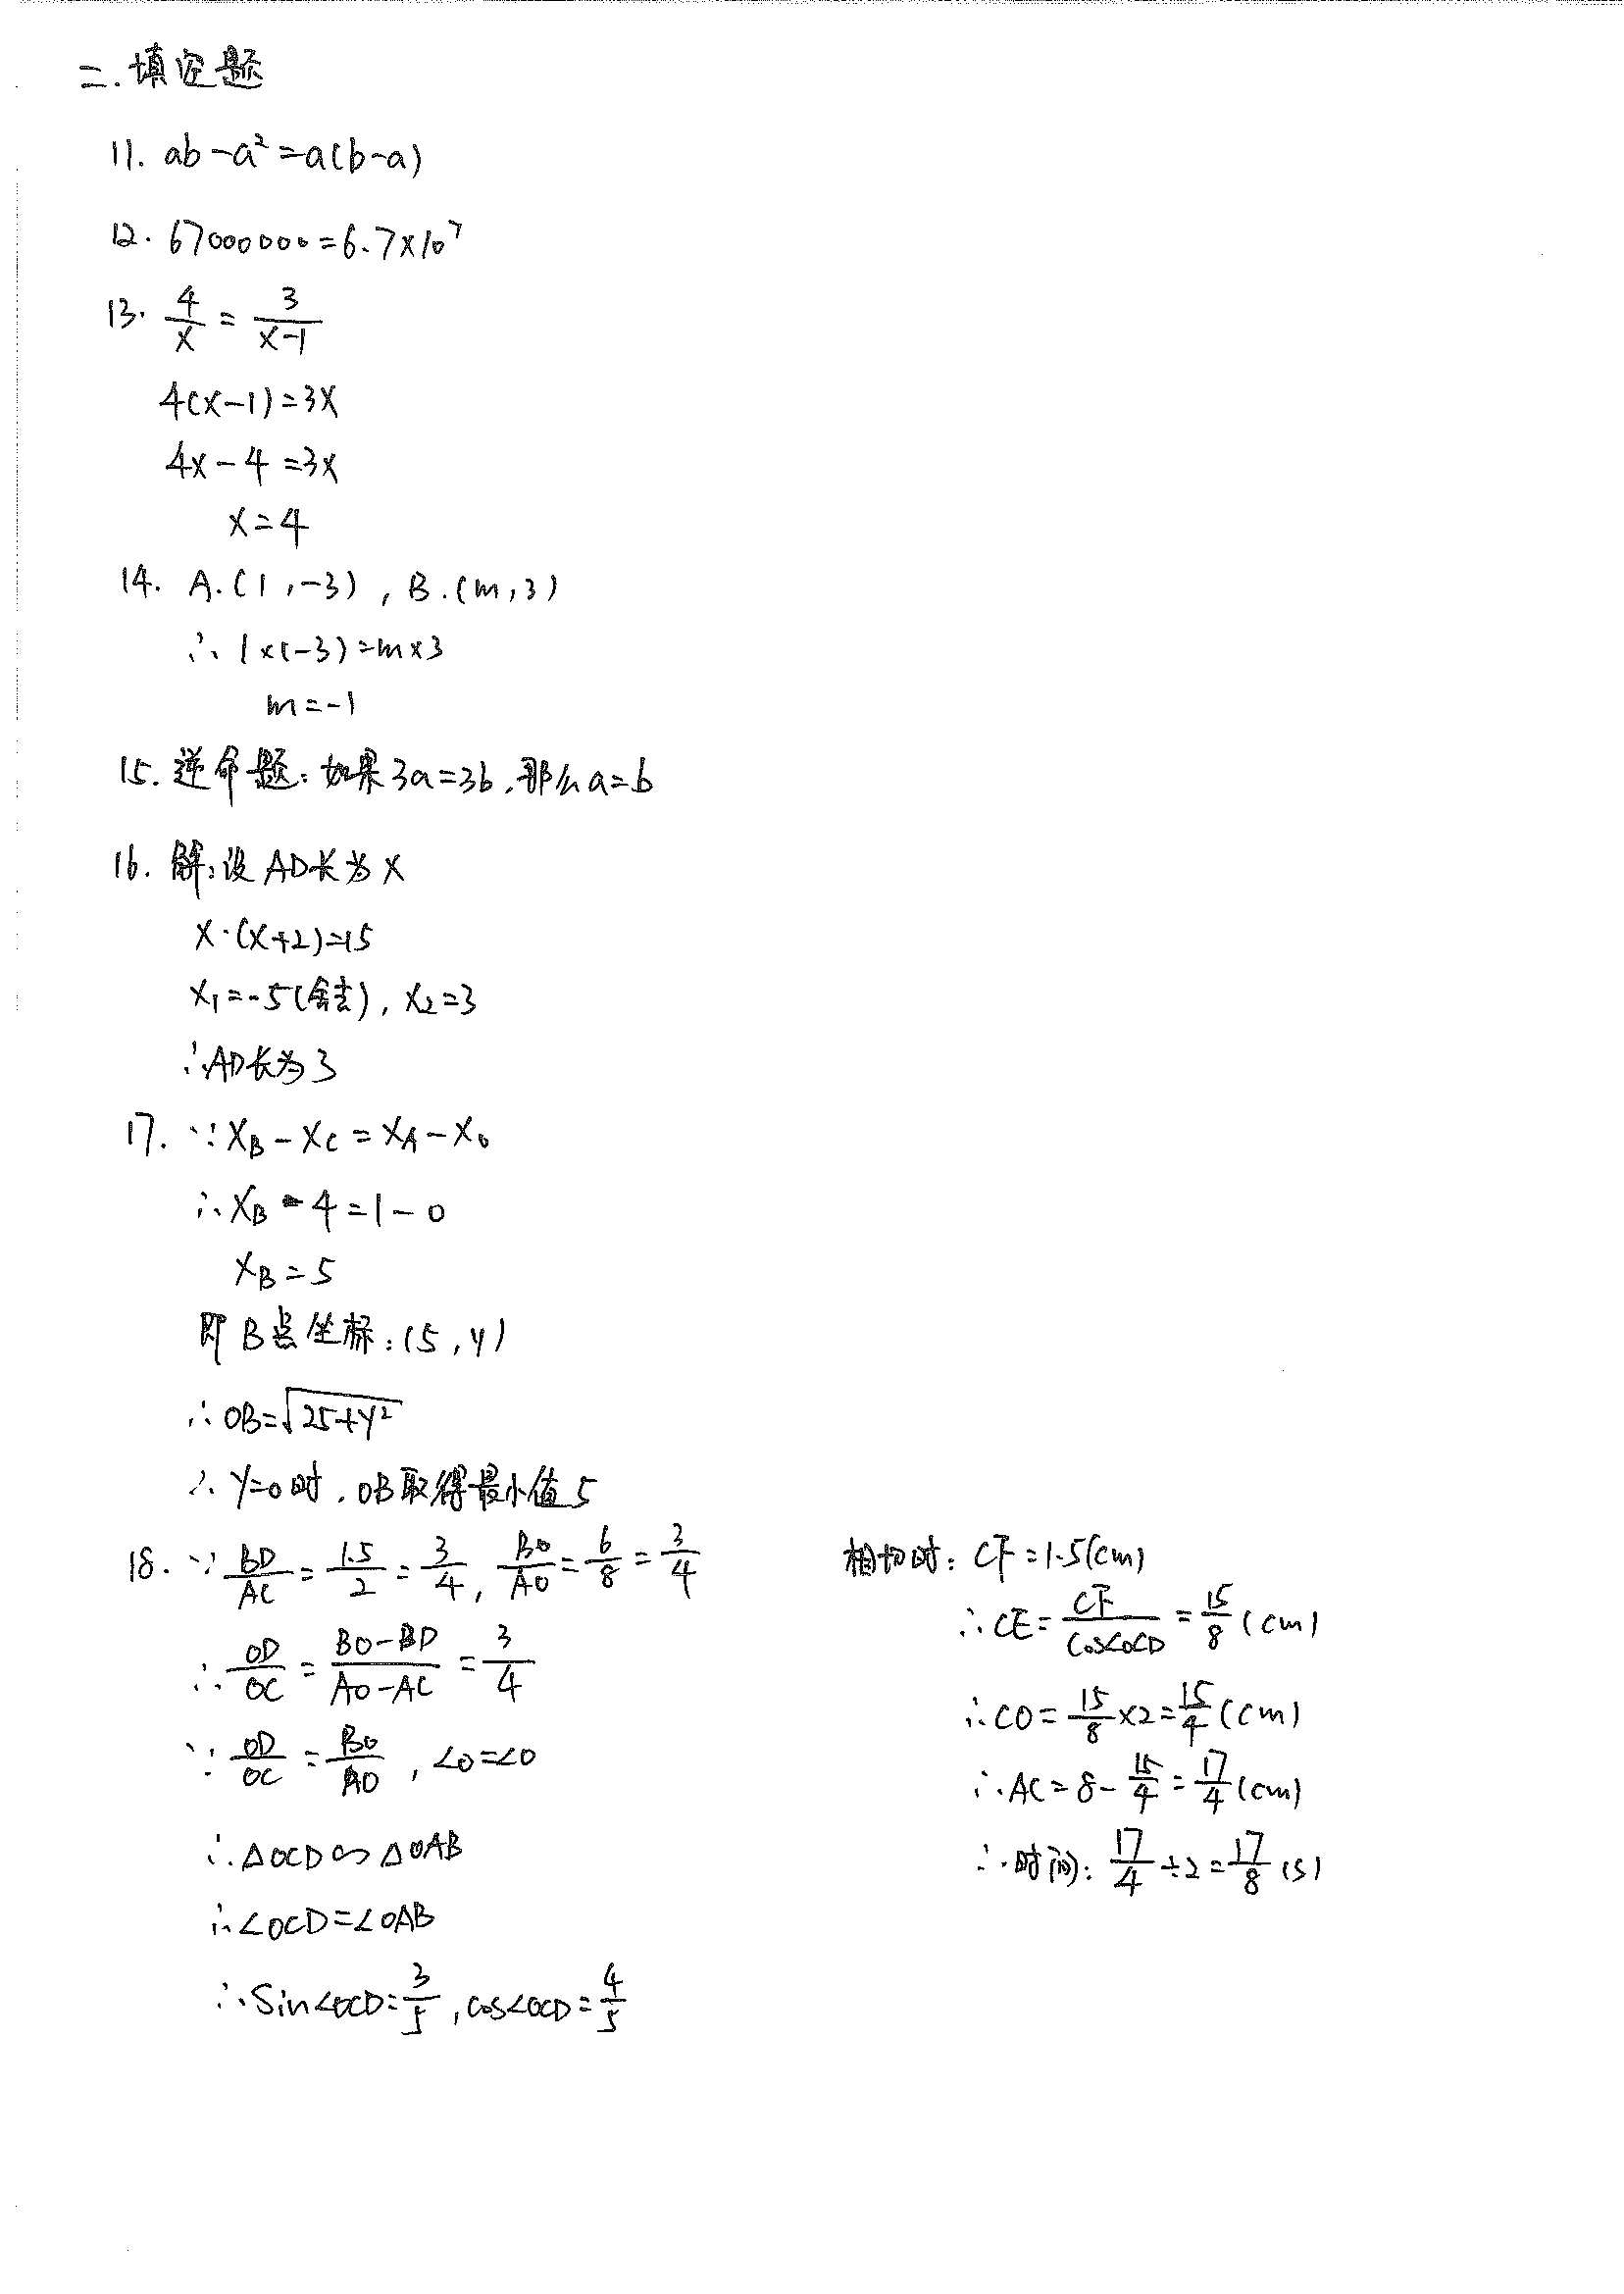 二.填空题
11. ab-a²=a(b-a)
12. 67000000=6.7×10⁷
13. 4/x = 3/(x-1)
4(x-1)=3x
4x-4=3x
x=4
14. A.(1,-3), B.(m,3)
∴ 1×(-3)=m×3
m=-1
15. 逆命题:如果3a=3b,那么a=b
16. 解:设AD长为x
x·(x+2)=15
x₁=-5(舍去), x₂=3
∴AD长为3
17. ∵X_B-X_C=X_A-X_O
∴X_B-4=1-0
X_B=5
即B点坐标:(5,y)
∴OB=√(25+y²)
∴y=0时,OB取得最小值5
18. ∵ BD/AC = 1.5/2 = 3/4, BO/AO = 6/8 = 3/4
∴ OD/OC = (BO-BD)/(AO-AC) = 3/4
∵ OD/OC = BO/AO, ∠O=∠O
∴△OCD∽△OAB
∴∠OCD=∠OAB
∴Sin∠OCD=3/5, cos∠OCD=4/5
相切时: CF=1.5(cm)
∴CE= CF/cos∠OCD = 15/8 (cm)
∴CO= 15/8 ×2= 15/4 (cm)
∴AC=8- 15/4 = 17/4 (cm)
∴时间: 17/4 ÷2= 17/8 (s)